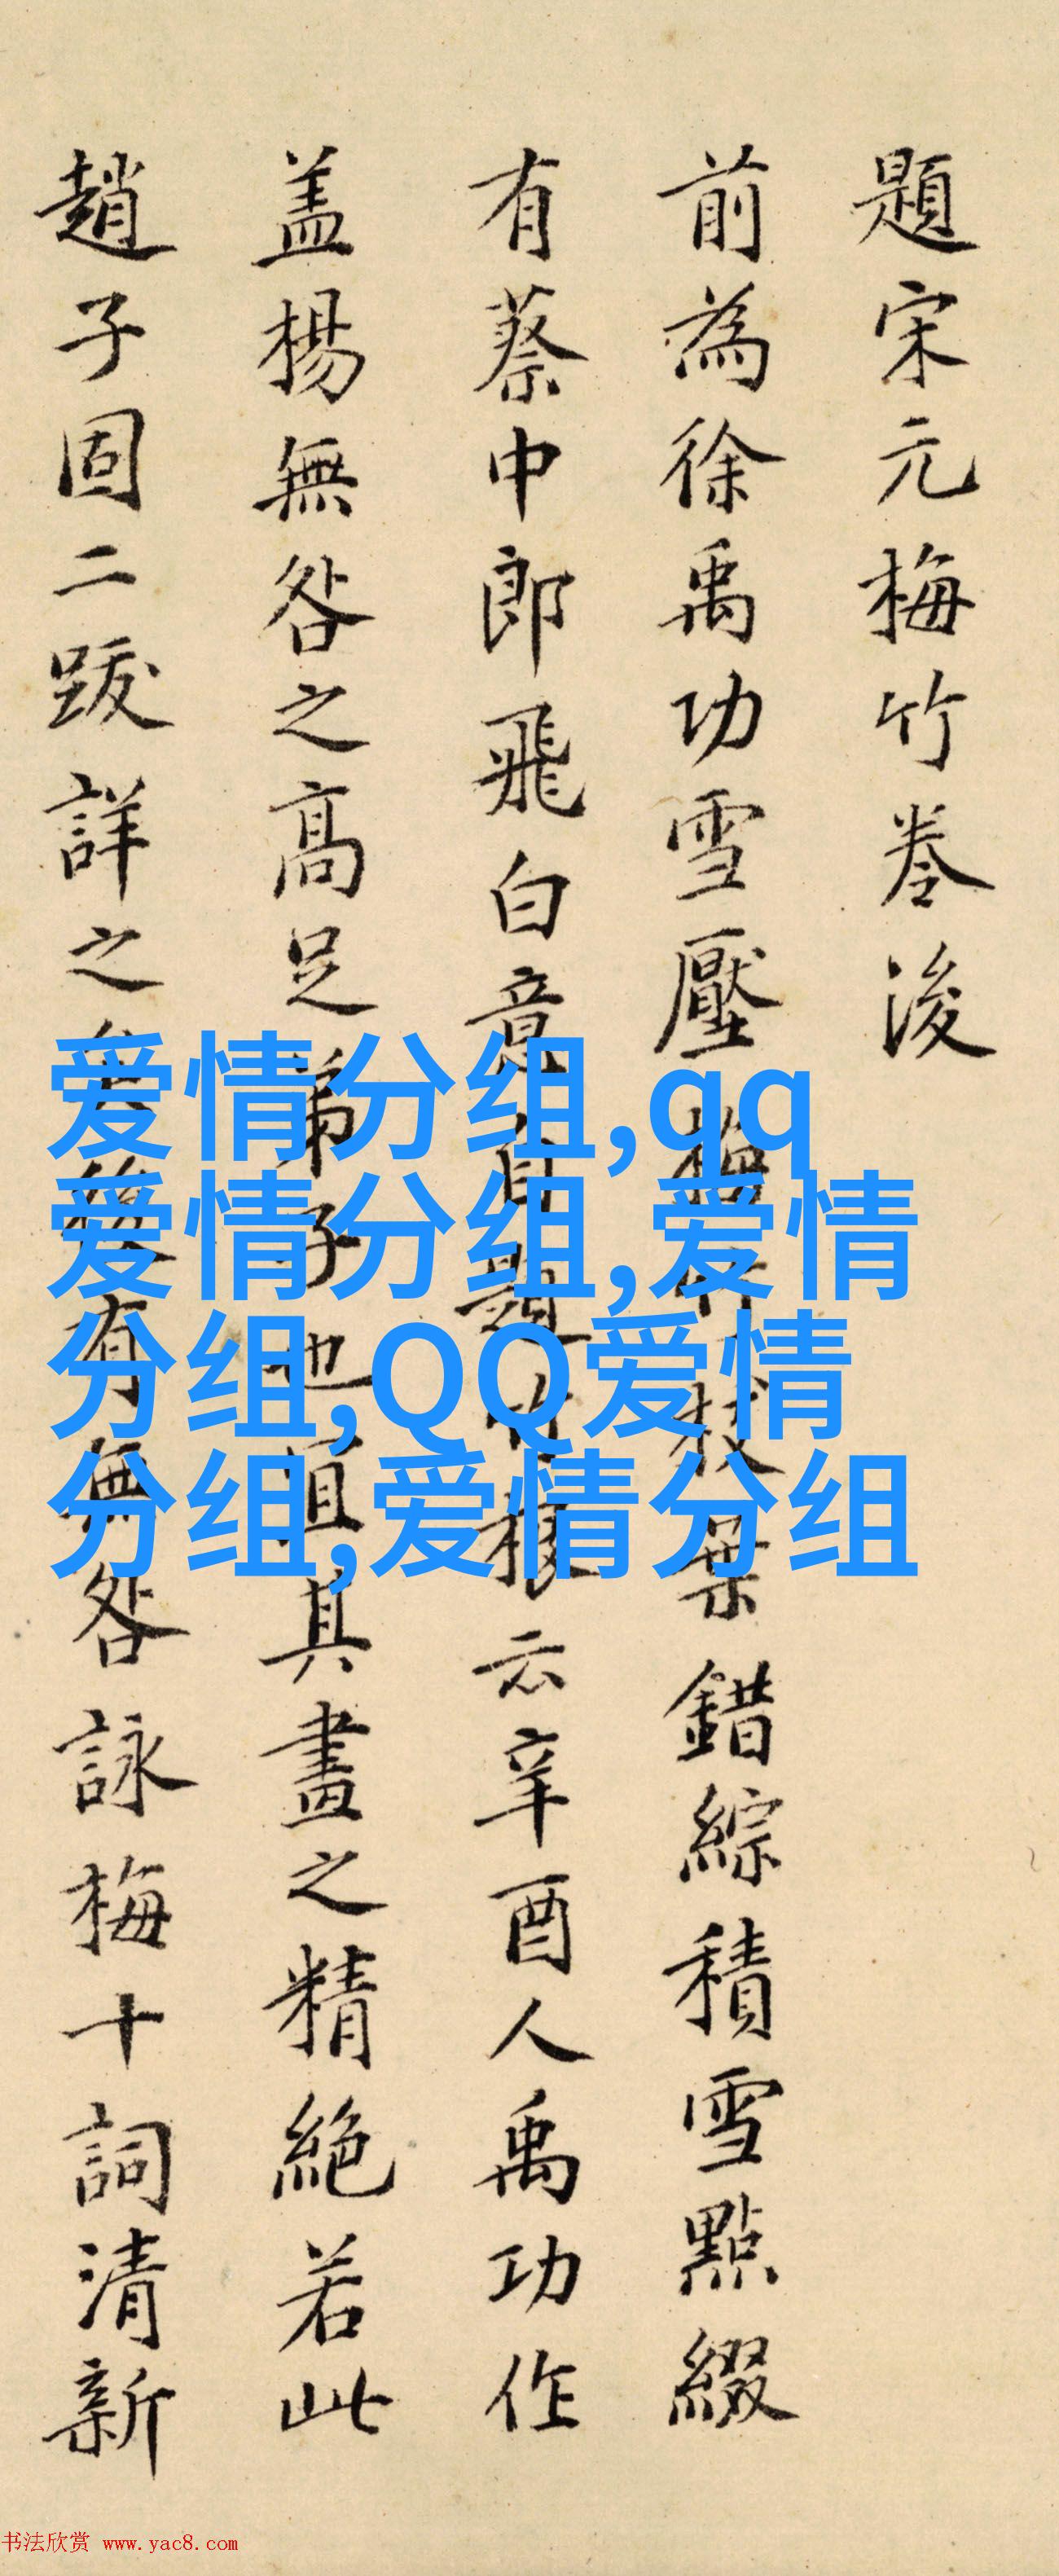 題宋元梅竹卷後
前為徐禹功雪壓梅竹枝葉錯綜積雪點綴
有蔡中郎飛白意自題竹根云辛酉人禹功作
盖楊無咎之高足弟子也宜其畫之精絕若此
趙子固二跋詳之矣後有無咎詠梅十詞清新
爱情分组,qq
爱情分组,爱情
分组,QQ爱情
分组,爱情分组
书法欣赏 www.yac8.com